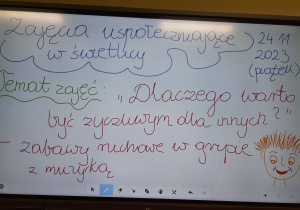 Zajęcia uspołeczniające
w świetlicy
24 11
2023
(piątek)
Temat zajęć:
„Dlaczego warto
być życzliwym dla innych?"
- zabawy ruchowe w grupie
z muzyką